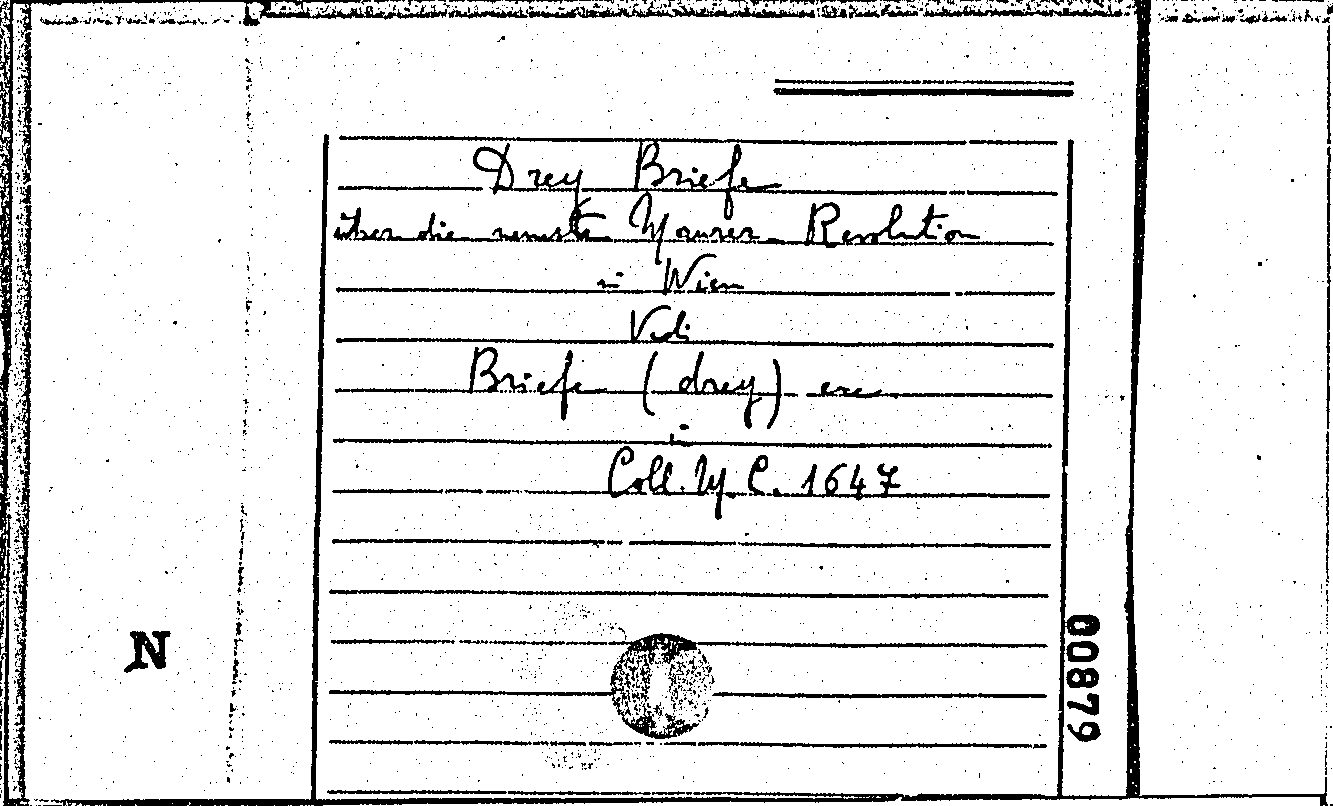 Drey Briefe
über die neueste Maurer Revolution
in Wien
Vedi
Briefe (drey) ecc
in
Coll. M. C. 1647
N
00879